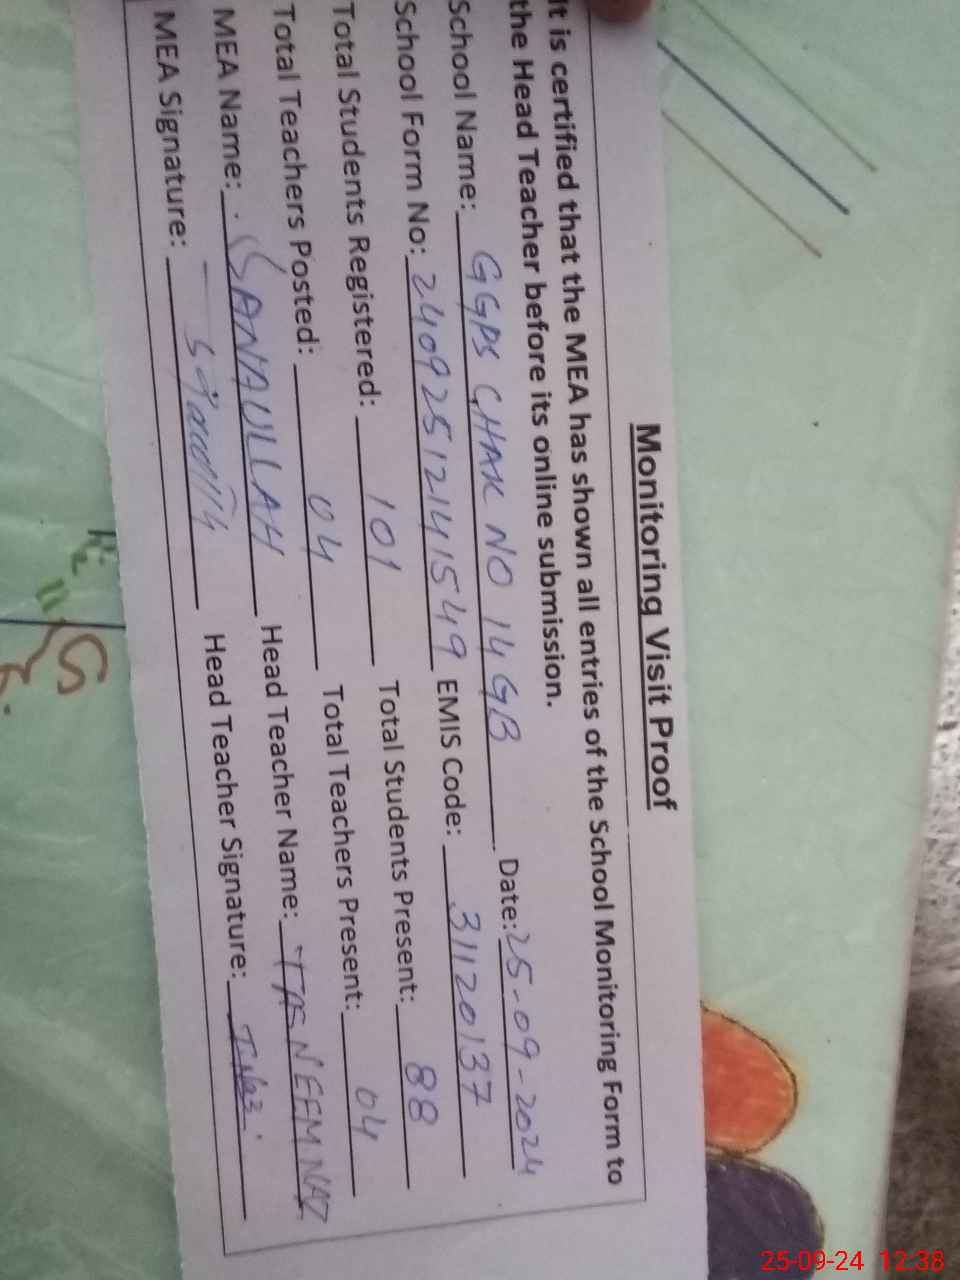 Monitoring Visit Proof
It is certified that the MEA has shown all entries of the School Monitoring Form to
the Head Teacher before its online submission.
School Name: GGPS CHAK NO 14 GB Date: 25-09-2024
School Form No: 24092512141549 EMIS Code: 31120137
Total Students Registered: 101 Total Students Present: 88
Total Teachers Posted: 04 Total Teachers Present: 04
MEA Name: SANAULLAH Head Teacher Name: TASNEEM NAZ
MEA Signature: Head Teacher Signature: T.Naz
25-09-24 12:38